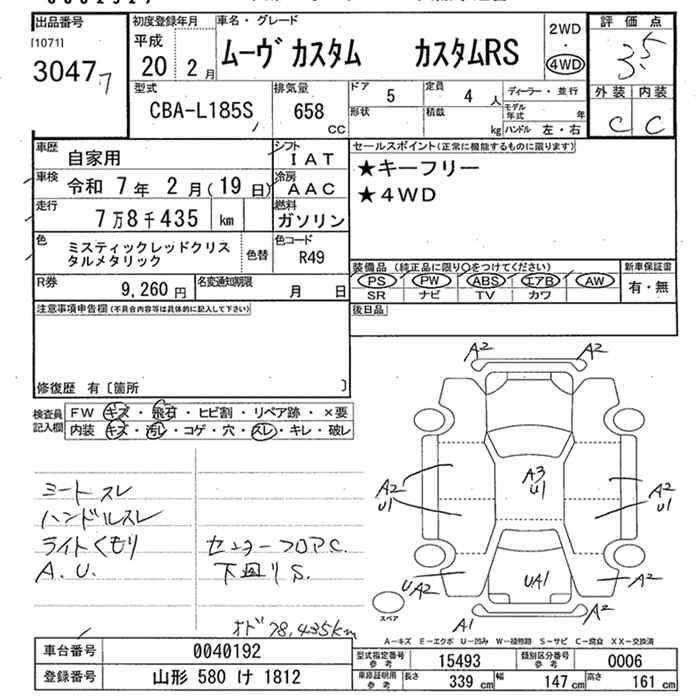 出品番号
[1071]
30477
初度登録年月
平成
20年 2月
車名・グレード
ムーヴ カスタム カスタムRS
2WD
・
4WD
評価点
3.5
外装 内装
C C
型式
CBA-L185S
排気量
658
CC
ドア 5
定員 4 人
形状
積載 kg
ディーラー・並行
モデル年式 年
ハンドル 左・右
車歴 自家用
シフト IAT
車検 令和 7年 2月(19日)
冷房 AAC
走行 7万8千435 km
燃料 ガソリン
色 ミスティックレッドクリス
タルメタリック
色替
色コード R49
R券 9,260円
名変通知期限 月 日
セールスポイント(正常に機能するものに限ります)
★キーフリー
★4WD
装備品(純正品に限り○をつけてください)
新車保証書
PS PW ABS エアB AW
有・無
SR ナビ TV カワ
後日品
注意事項申告欄(不具合内容等は具体的に記入して下さい)
修復歴 有〔箇所 〕
検査員記入欄
FW キズ・飛石・ヒビ割・リペア跡・×要
内装 キズ・汚れ・コゲ・穴・スレ・キレ・破レ
シートスレ
ハンドルスレ
ライトくもり
A.U.
センターフロアC.
下回りS.
オド78,435km
A2 A2
A2
U1
A3
U1
A2
U1
UA2
UA1
A2
A1
A2
スペア
A-キズ E-エクボ U-凹み W-補修跡 S-サビ C-腐食 XX-交換済
車台番号 0040192
登録番号 山形 580 け 1812
型式指定番号 参考 15493
類別区分番号 参考 0006
車庫証明用 参考
長さ 339 cm 幅 147 cm 高さ 161 cm